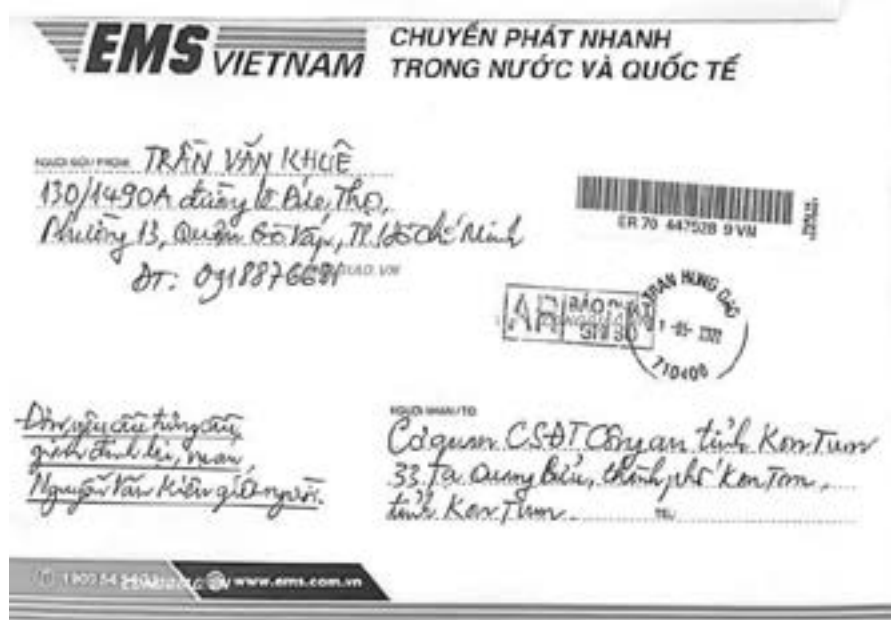 EMS VIETNAM
CHUYỂN PHÁT NHANH
TRONG NƯỚC VÀ QUỐC TẾ
TRẦN VĂN KHUÊ
130/1490A đường Lê Đức Thọ,
Phường 13, Quận Gò Vấp, TP. Hồ Chí Minh
ĐT:
ER 70 447528 9 VN
AR BÁO
TRAN HUNG DAO
710400
Đơn yêu cầu trưng cầu
giám định lại, vụ án
Nguyễn Văn Kiên giết người.
NGƯỜI NHẬN/TO
Cơ quan CSĐT Công an tỉnh Kon Tum
33 Tạ Quang Bửu, thành phố Kon Tum,
tỉnh Kon Tum
www.ems.com.vn